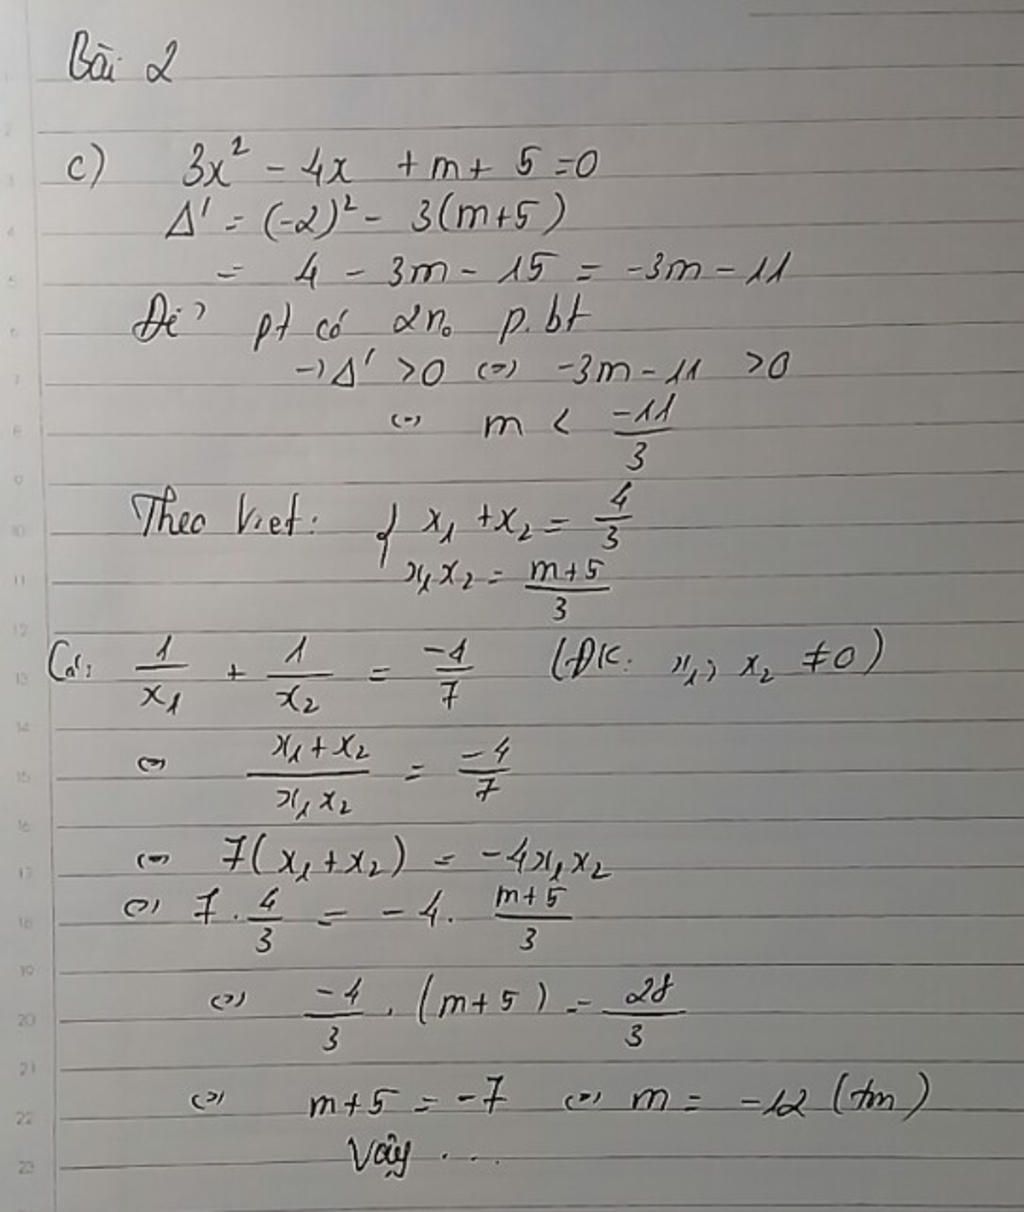 Bài 2
c) 3x² - 4x + m + 5 = 0
Δ' = (-2)² - 3(m+5)
= 4 - 3m - 15 = -3m - 11
Để pt có 2 no p.bt
→ Δ' > 0 (=) -3m - 11 > 0
(=) m < -11/3
Theo Viet: { x₁ + x₂ = 4/3
x₁x₂ = (m+5)/3
Có: 1/x₁ + 1/x₂ = -4/7 (ĐK: x₁, x₂ ≠ 0)
(=) (x₁ + x₂)/(x₁x₂) = -4/7
(=) 7(x₁ + x₂) = -4x₁x₂
(=) 7 . 4/3 = -4 . (m+5)/3
(=) -4/3 . (m+5) = 28/3
(=) m+5 = -7 (=) m = -12 (tm)
Vậy ...